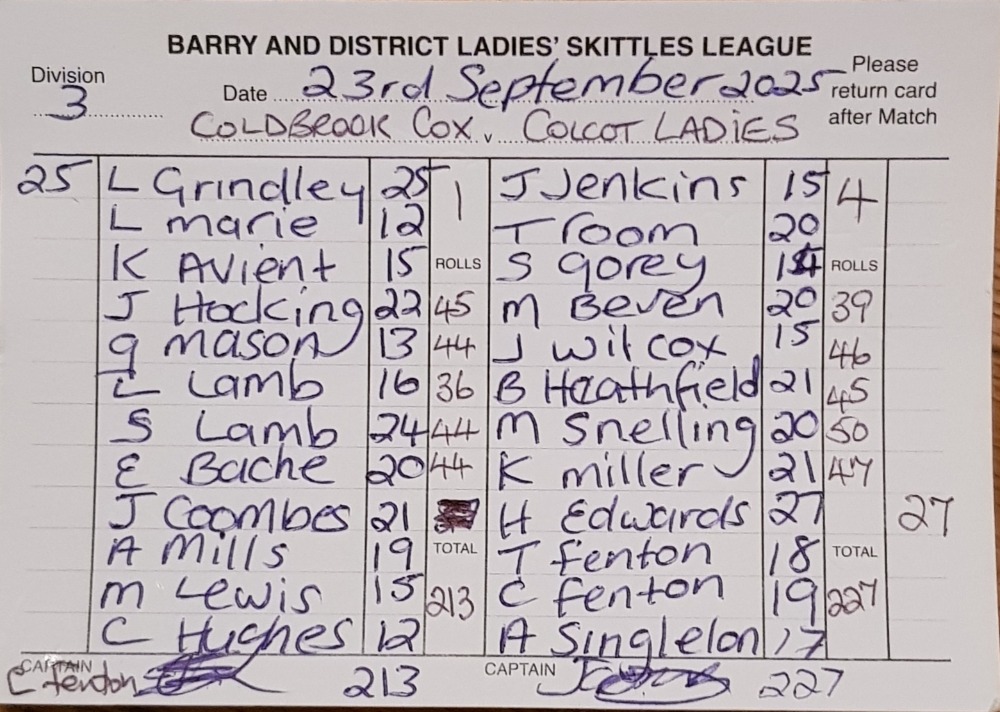 BARRY AND DISTRICT LADIES' SKITTLES LEAGUE
Division 3 Date 23rd September 2025 Please return card after Match
COLDBROOK COX v. COLCOT LADIES
25 L Grindley 25 1 J Jenkins 15 4
L marie 12 T room 20
K Avient 15 ROLLS S gorey 14 ROLLS
J Hocking 22 45 M Beven 20 39
g mason 13 44 J wilcox 15 46
L Lamb 16 36 B Heathfield 21 45
S Lamb 24 44 M Snelling 20 50
E Bache 20 44 K miller 21 47
J Coombes 21 H Edwards 27 27
A Mills 19 TOTAL T fenton 18 TOTAL
M Lewis 15 213 C fenton 19 227
C Hughes 12 A Singleton 17
CAPTAIN C fenton 213 CAPTAIN 227